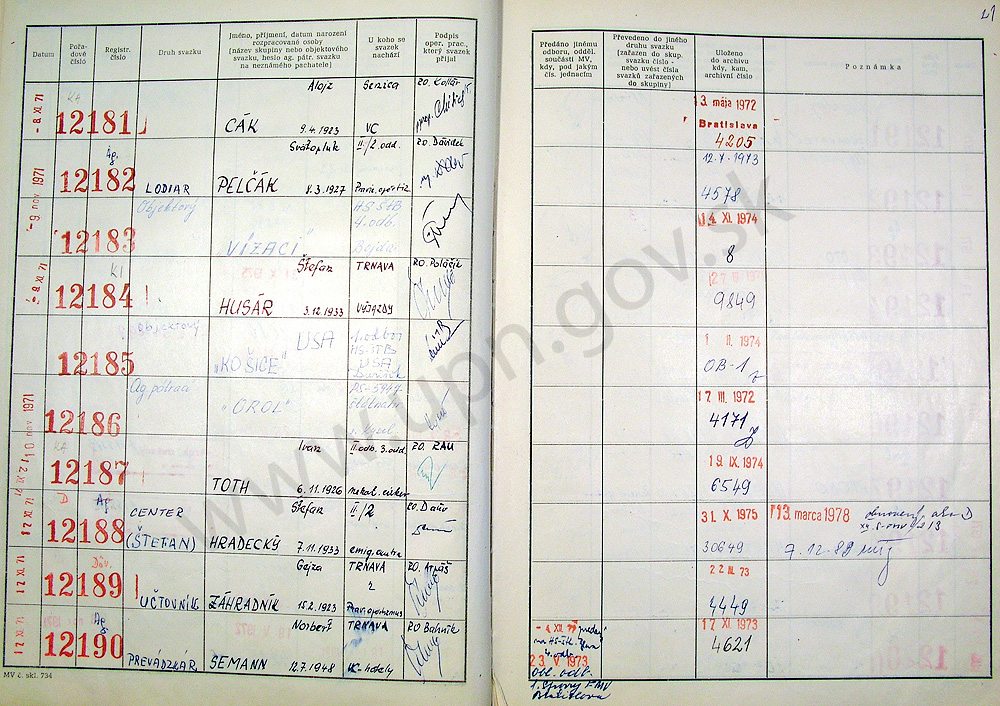 21
Datum
Pořa-
dové
číslo
Registr.
číslo
Druh svazku
Jméno, příjmení, datum narození
rozpracované osoby
(název skupiny nebo objektového
svazku, heslo ag. pátr. svazku
na neznámého pachatele)
U koho se
svazek
nachází
Podpis
oper. prac.,
který svazek
přijal
Předáno jinému
odboru, odděl.
součásti MV,
kdy, pod jakým
čís. jednacím
Převedeno do jiného
druhu svazku
(zařazen do skup.
svazku číslo -
nebo uvést čísla
svazků zařazených
do skupiny)
Uloženo
do archivu
kdy, kam,
archivní číslo
Poznámka
- 8. XI. 71
KA
12181
Alojz
CÁK
9.4.1923
Senica
VC
RO. Kollár
13. mája 1972
Bratislava
4205
- 9. nov 1971
Ag.
12182
LODIAR
Svätopluk
PELČÁK
8.3.1927
II./2.odd.
RO. Dávidek
12.7.1973
4578
12183
Objektový
"VÍZACI"
HS ŠtB
4.odb.
14. XI. 1974
8
- 8. XI. 71
KA
12184
Štefan
HUSÁR
3.12.1933
TRNAVA
VÝJAZDY
RO. Poláčik
9849
12185
objektový
"KOŠICE"
USA
HS-ŠTB
USA
1974
OB-1
10 nov 1971
12186
Ag. pátraci
"OROL"
17. III. 1972
4171
KA
12187
Ivan
TOTH
6.11.1926
II.odb. 3.odd.
RO. RAU
19. IX. 1974
6549
12. XI. 71
D
12188
Ag.
CENTER
(ŠTEFAN)
Štefan
HRADECKÝ
7.11.1933
II./2
emig.centra
RO. Daňo
31. X. 1975
30649
13. marca 1978
7.12.88
12. XI. 71
12189
Dôv.
ÚČTOVNÍK
Gejza
ZÁHRADNÍK
15.2.1923
TRNAVA
2
Prav. oportunizmus
22. III. 73
4449
12. XI. 71
12190
Ag.
PREVÁDZKÁR
Norbert
ŠEMANN
12.7.1948
TRNAVA
VC-hotely
RO Bahník
4. odb.
23. V. 1973
Bratislava
17. XI. 1973
4621
MV č. skl. 734
www.upn.gov.sk